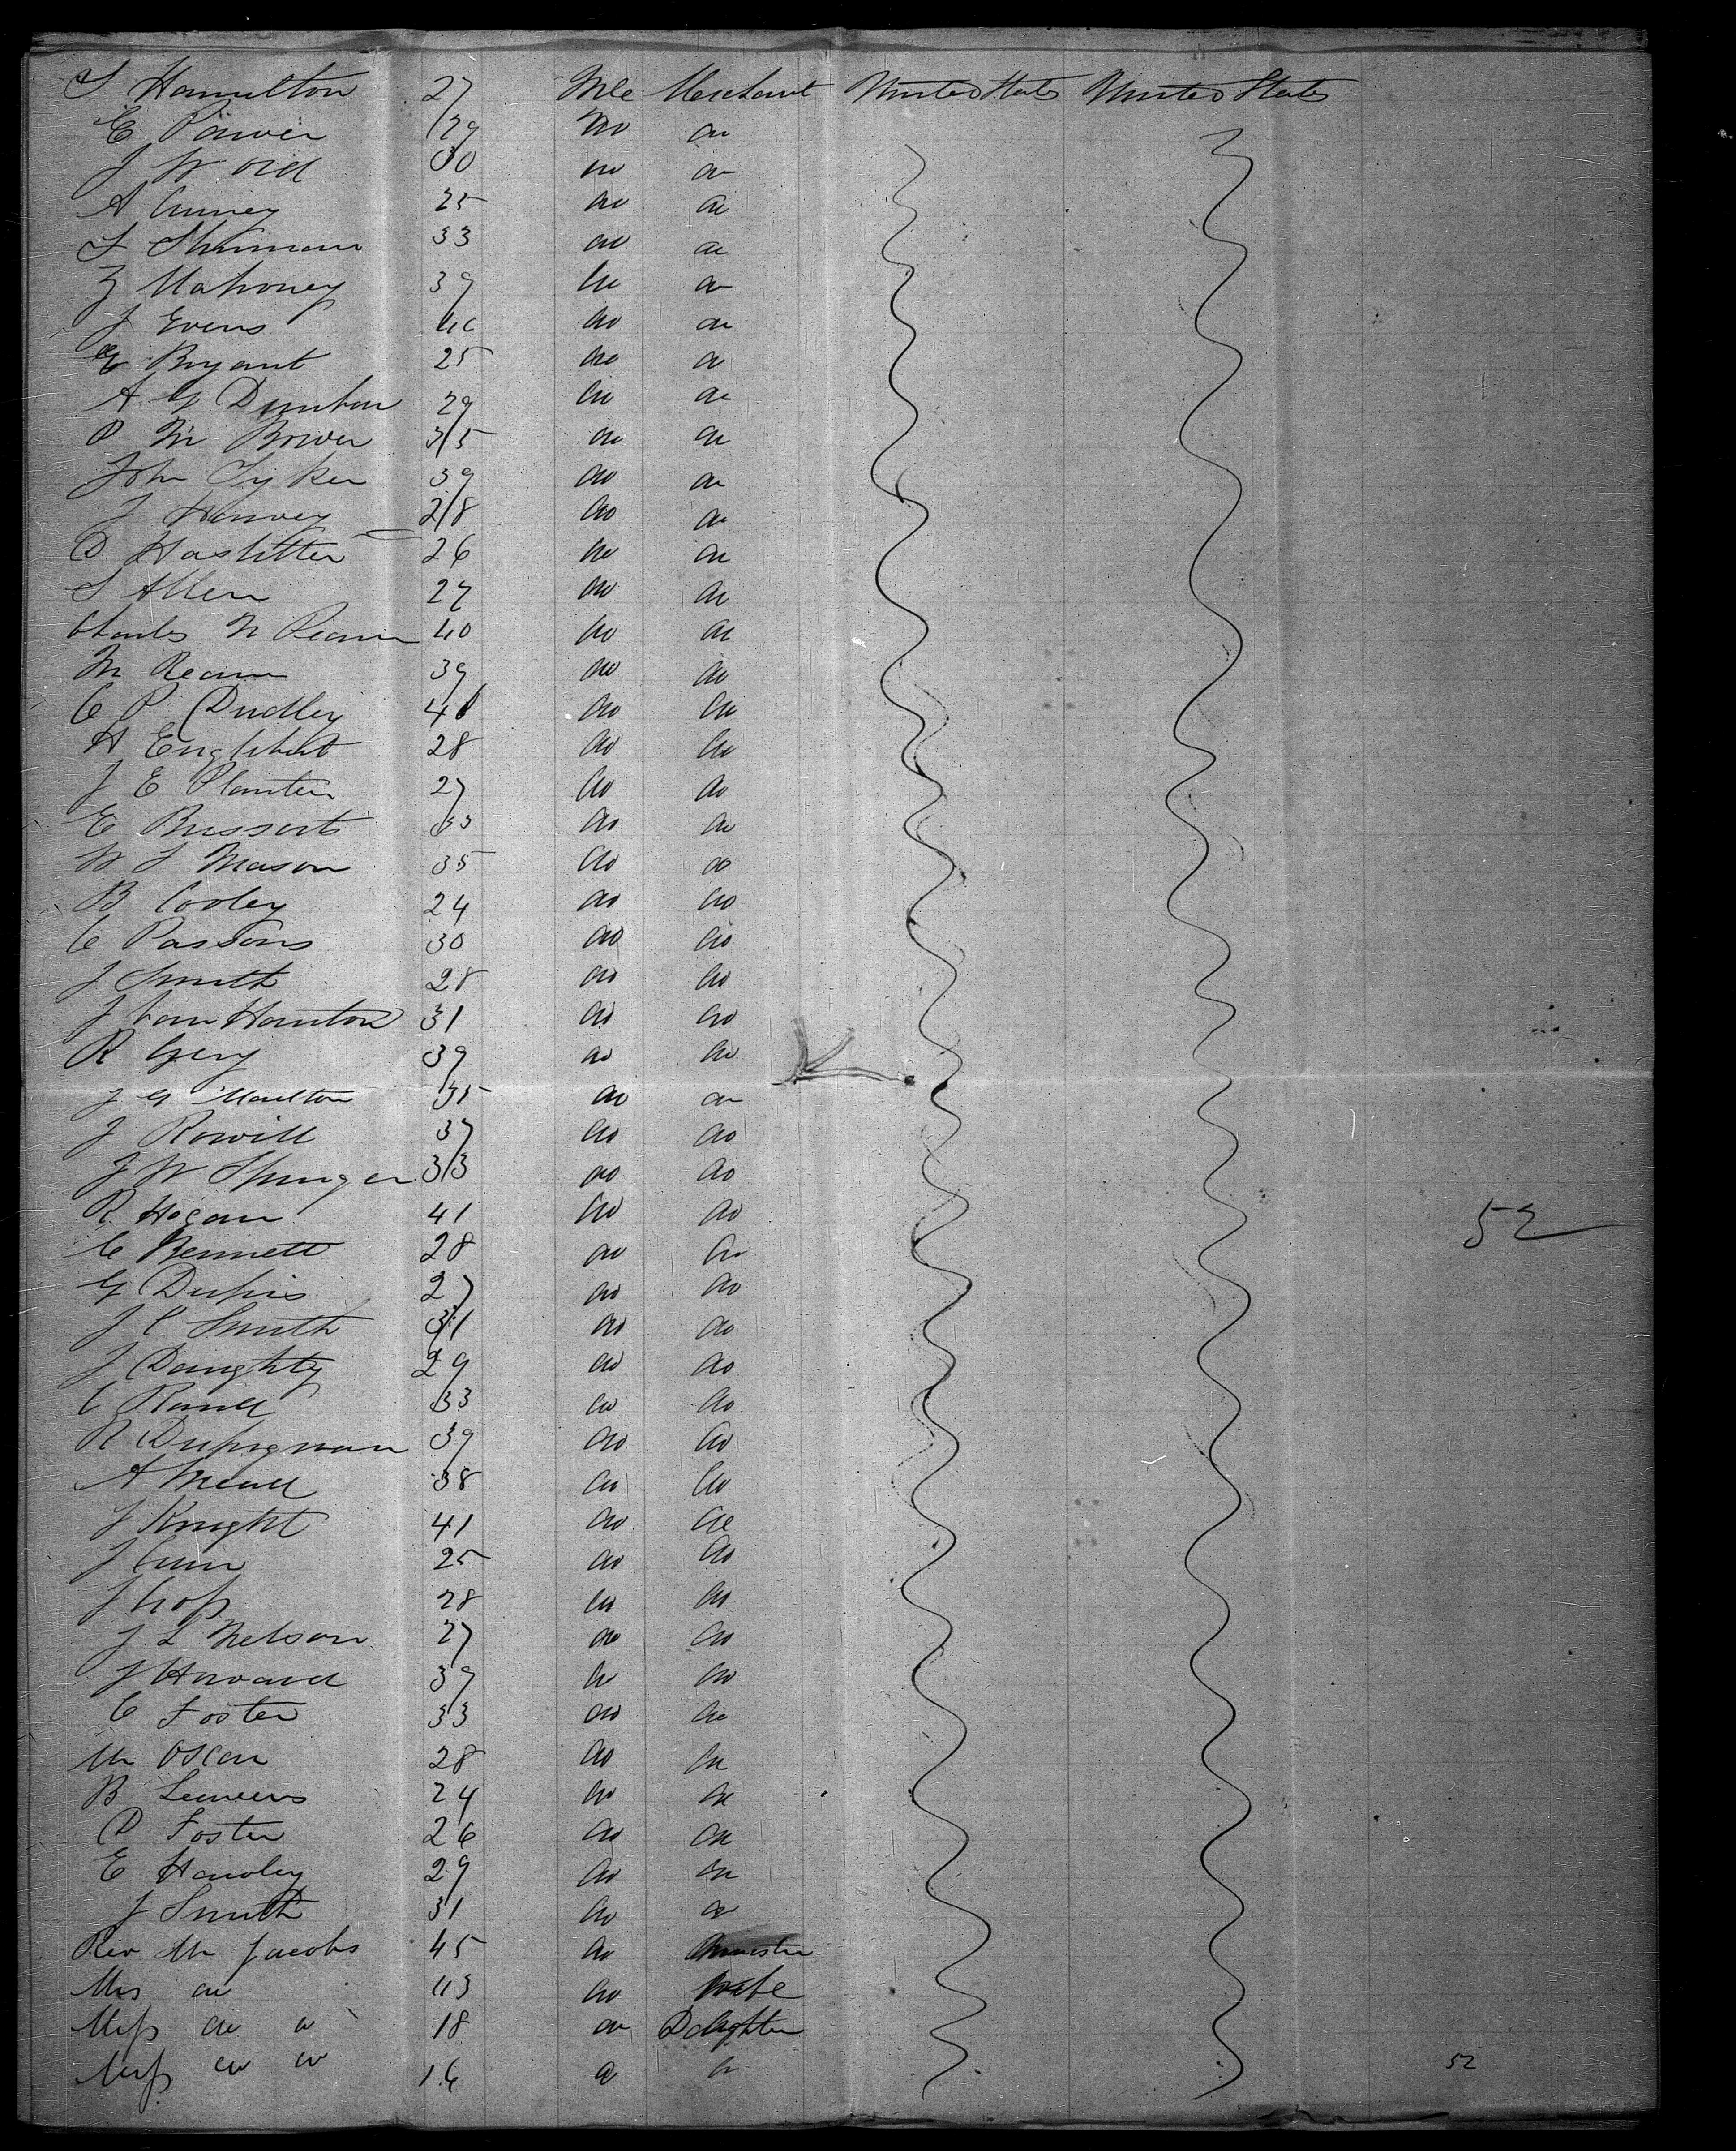 S Hamilton 27 Mle Merchant United States United States
E Power 29 do do
J W Old 30 do do
A 25 do do
S Shuman 33 do do
Z Mahoney 39 do do
J Evens do do
G Bryant 25 do do
A G Dunbar 29 do do
P M Brower 35 do do
John Syker 39 do do
J Harvey 28 do do
D Hastetter 26 do do
S Allen 27 do do
Charles N Ream 40 do do
M Ream 39 do do
C P Dudley do do
H Englebert 28 do do
J E Planter 27 do do
E Bussert 33 do do
W S Mason 35 do do
B Cooley 24 do do
C Parsons 30 do do
J Smith 28 do do
J Van Hauton 31 do do
R Gery 39 do do
J G Moulton 35 do do
J Rowill 37 do do
J W Springer 33 do do
R Hogan 41 do do
C Bennett 28 do do
G Dupis 27 do do
J C Smith 31 do do
J Daughty 29 do do
C Rand 33 do do
R Dupignan 39 do do
A Mead 38 do do
J Knight 41 do do
J Cain 25 do do
J 28 do do
J L Nelson 27 do do
J Howard 39 do do
C Foster 33 do do
Mr Oscar 28 do do
B Leavens 24 do do
D Foster 26 do do
E Hawley 29 do do
J Smith 31 do do
Rev Mr Jacobs 45 do
Mrs do 43 do Wife
Miss do do 18 do Daghter
Miss do do 16 do do
52
52